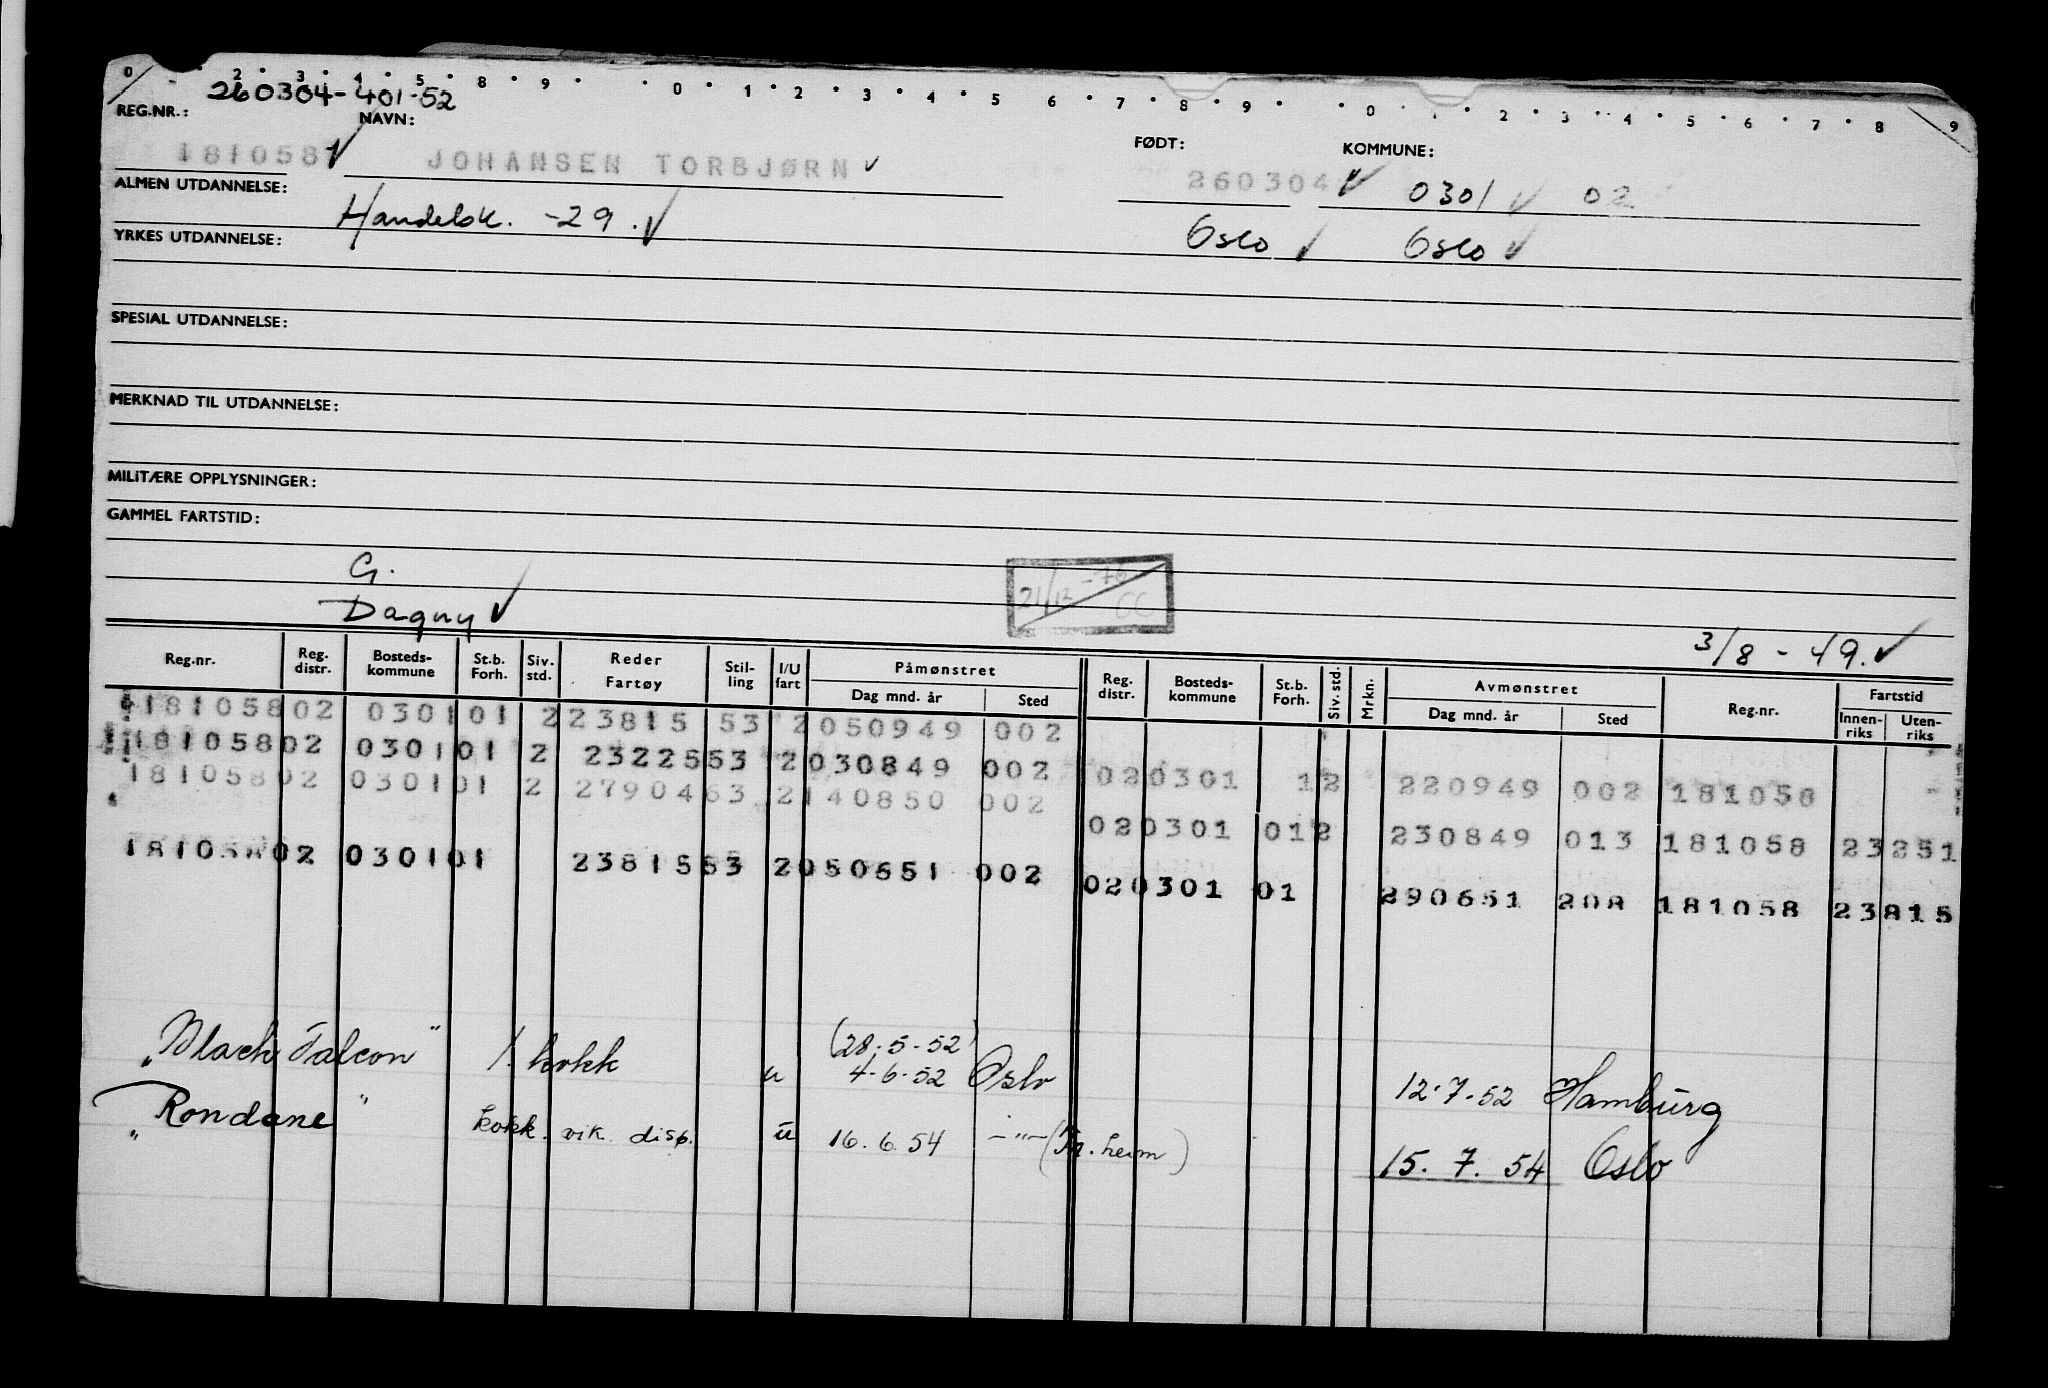 0 2 3 4 5 8 9 0 1 2 3 4 5 6 7 8 9 0 1 2 3 4 5 6 7 8 9
260304-401-52
REG.NR.: NAVN: FØDT: KOMMUNE:
181058 JOHANSEN TORBJØRN 260304 0301 02
ALMEN UTDANNELSE: Handelsk. -29. Oslo Oslo
YRKES UTDANNELSE:
SPESIAL UTDANNELSE:
MERKNAD TIL UTDANNELSE:
MILITÆRE OPPLYSNINGER:
GAMMEL FARTSTID:
G.
Dagny
21/12-76 CC
3/8-49.
Reg.nr. Reg. distr. Bosteds-kommune St.b. Forh. Siv. std. Reder Fartøy Stil-ling I/U fart Påmønstret Dag mnd. år Sted Reg. distr. Bosteds-kommune St.b. Forh. Siv. std. Mrkn. Avmønstret Dag mnd. år Sted Reg.nr. Fartstid Innen-riks Uten-riks
181058 02 0301 01 2 23815 53 2 050949 002
181058 02 0301 01 2 23225 53 2 030849 002 02 0301 1 2 220949 002 181058
181058 02 0301 01 2 27904 63 2 140850 002 02 0301 01 2 230849 013 181058 23251
181058 02 0301 01 23815 53 2 050651 002 02 0301 01 290651 208 181058 23815
(28.5.52)
"Black Falcon" 1. kokk u 4.6.52 Oslo 12.7.52 Hamburg
"Rondane" kokk. vik. disp. u 16.6.54 -"- (Tr.heim) 15.7.54 Oslo